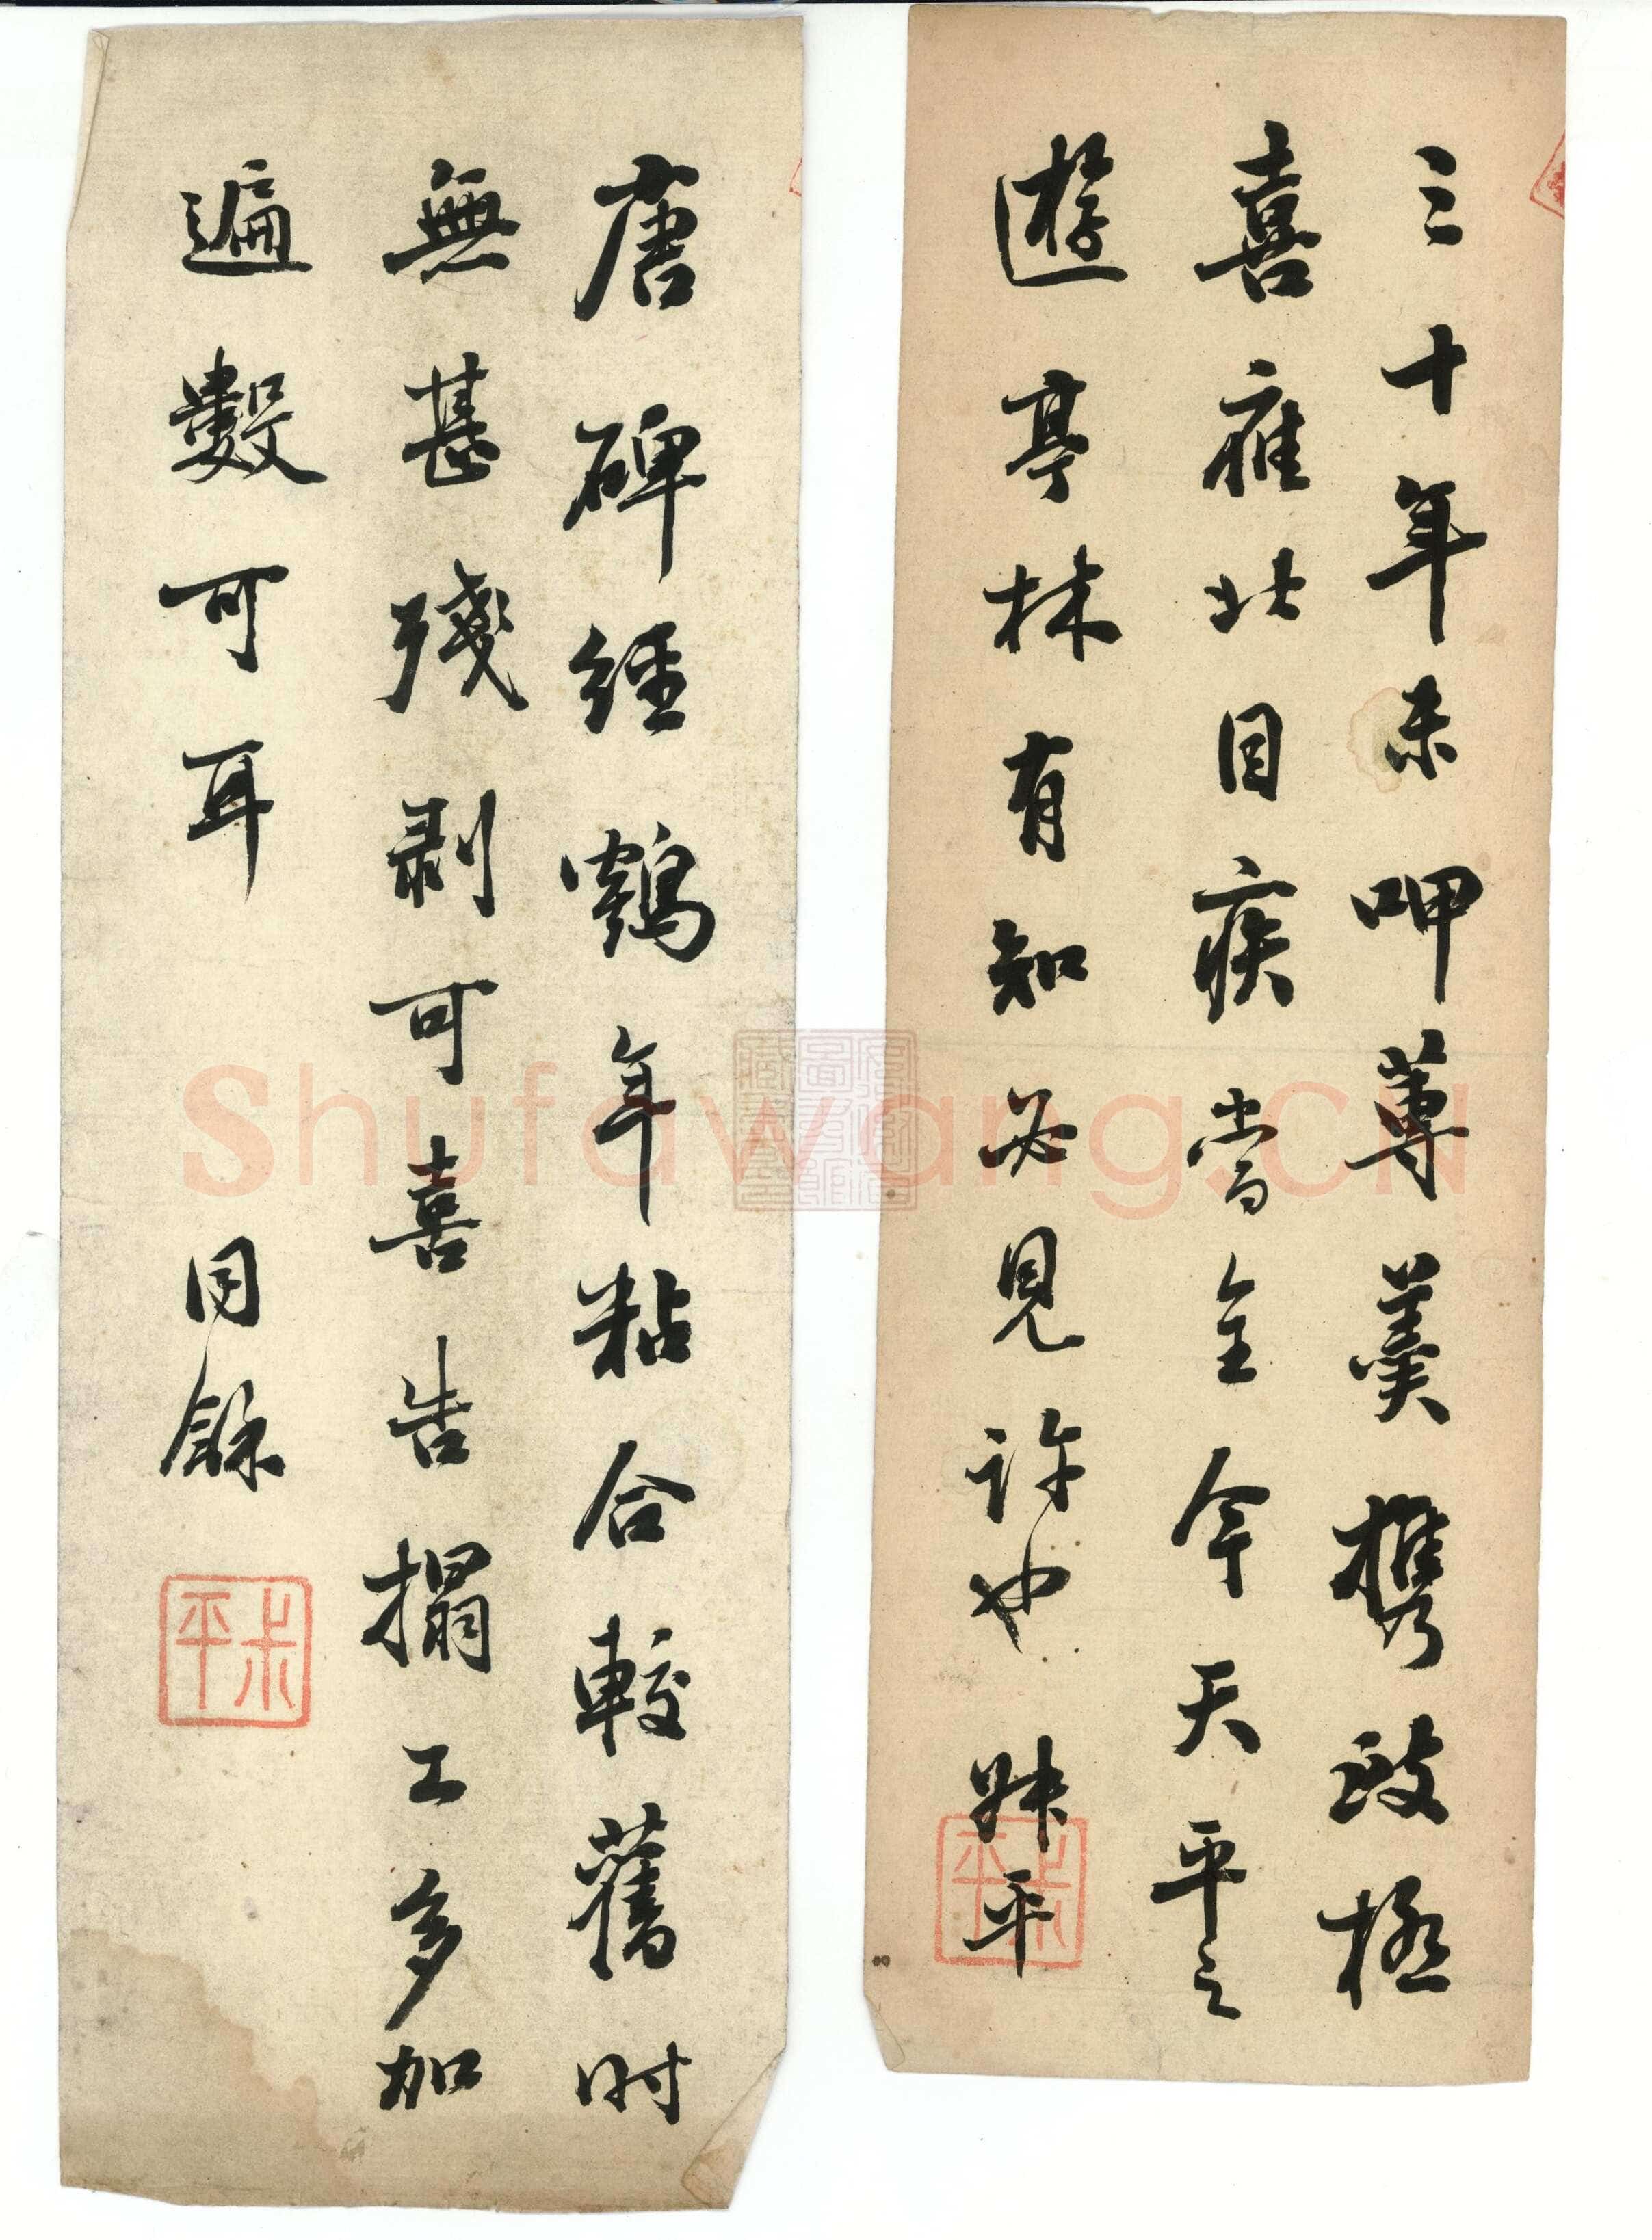 三十年未呷蓴羹攜致極
喜北目疾當全今天平之
遊亭林有知必見許也 叔平
唐碑經鶴年粘合較舊時
無甚殘剝可喜告搨工多加
遍數可耳 同龢
尗平
Shufawang.CN